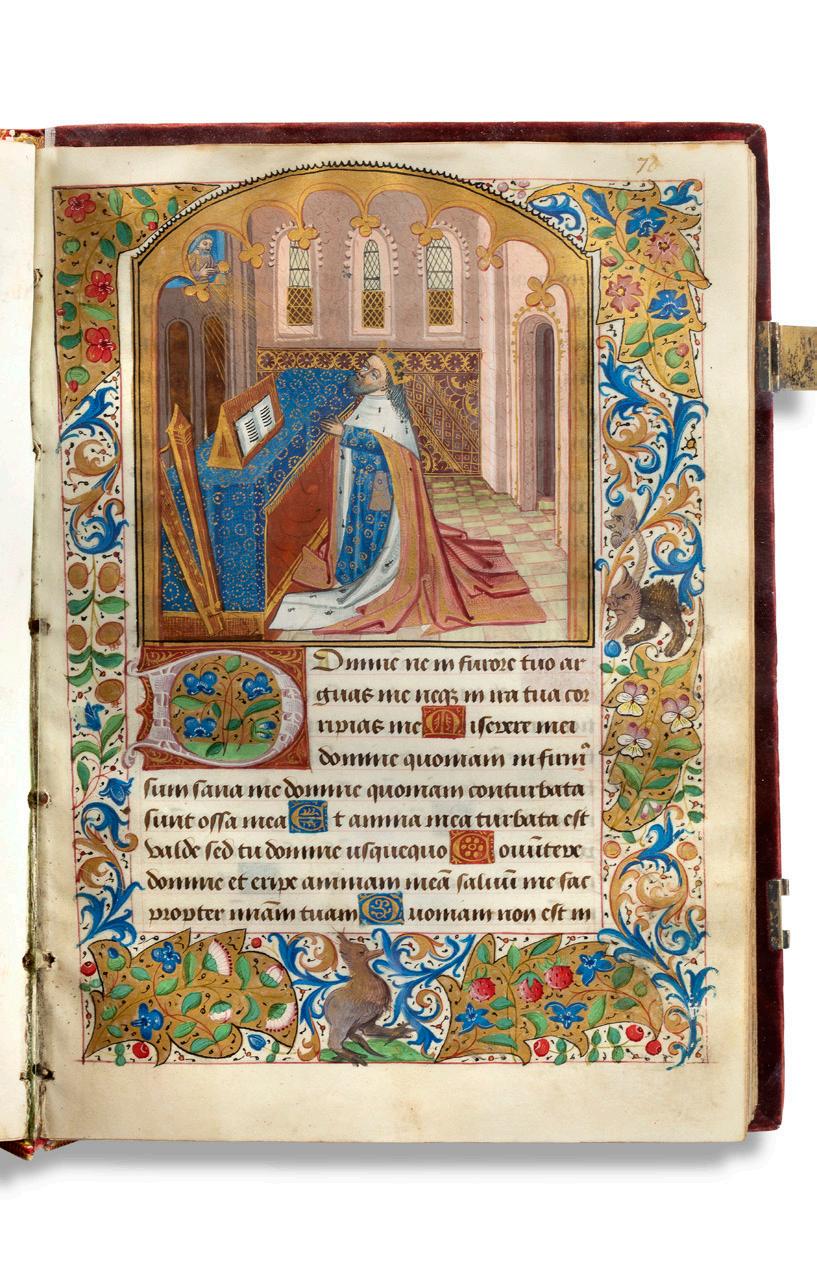 Domine ne in furore tuo ar
guas me neqꝫ in ira tua cor
ripias me Miserere mei
domine quoniam infirm̃
sum sana me domine quoniam conturbata
sunt ossa mea Et anima mea turbata est
valde sed tu domine usquequo Conũtere
domine et eripe animam meã saluũ me fac
propter miãm tuam Quoniam non est in